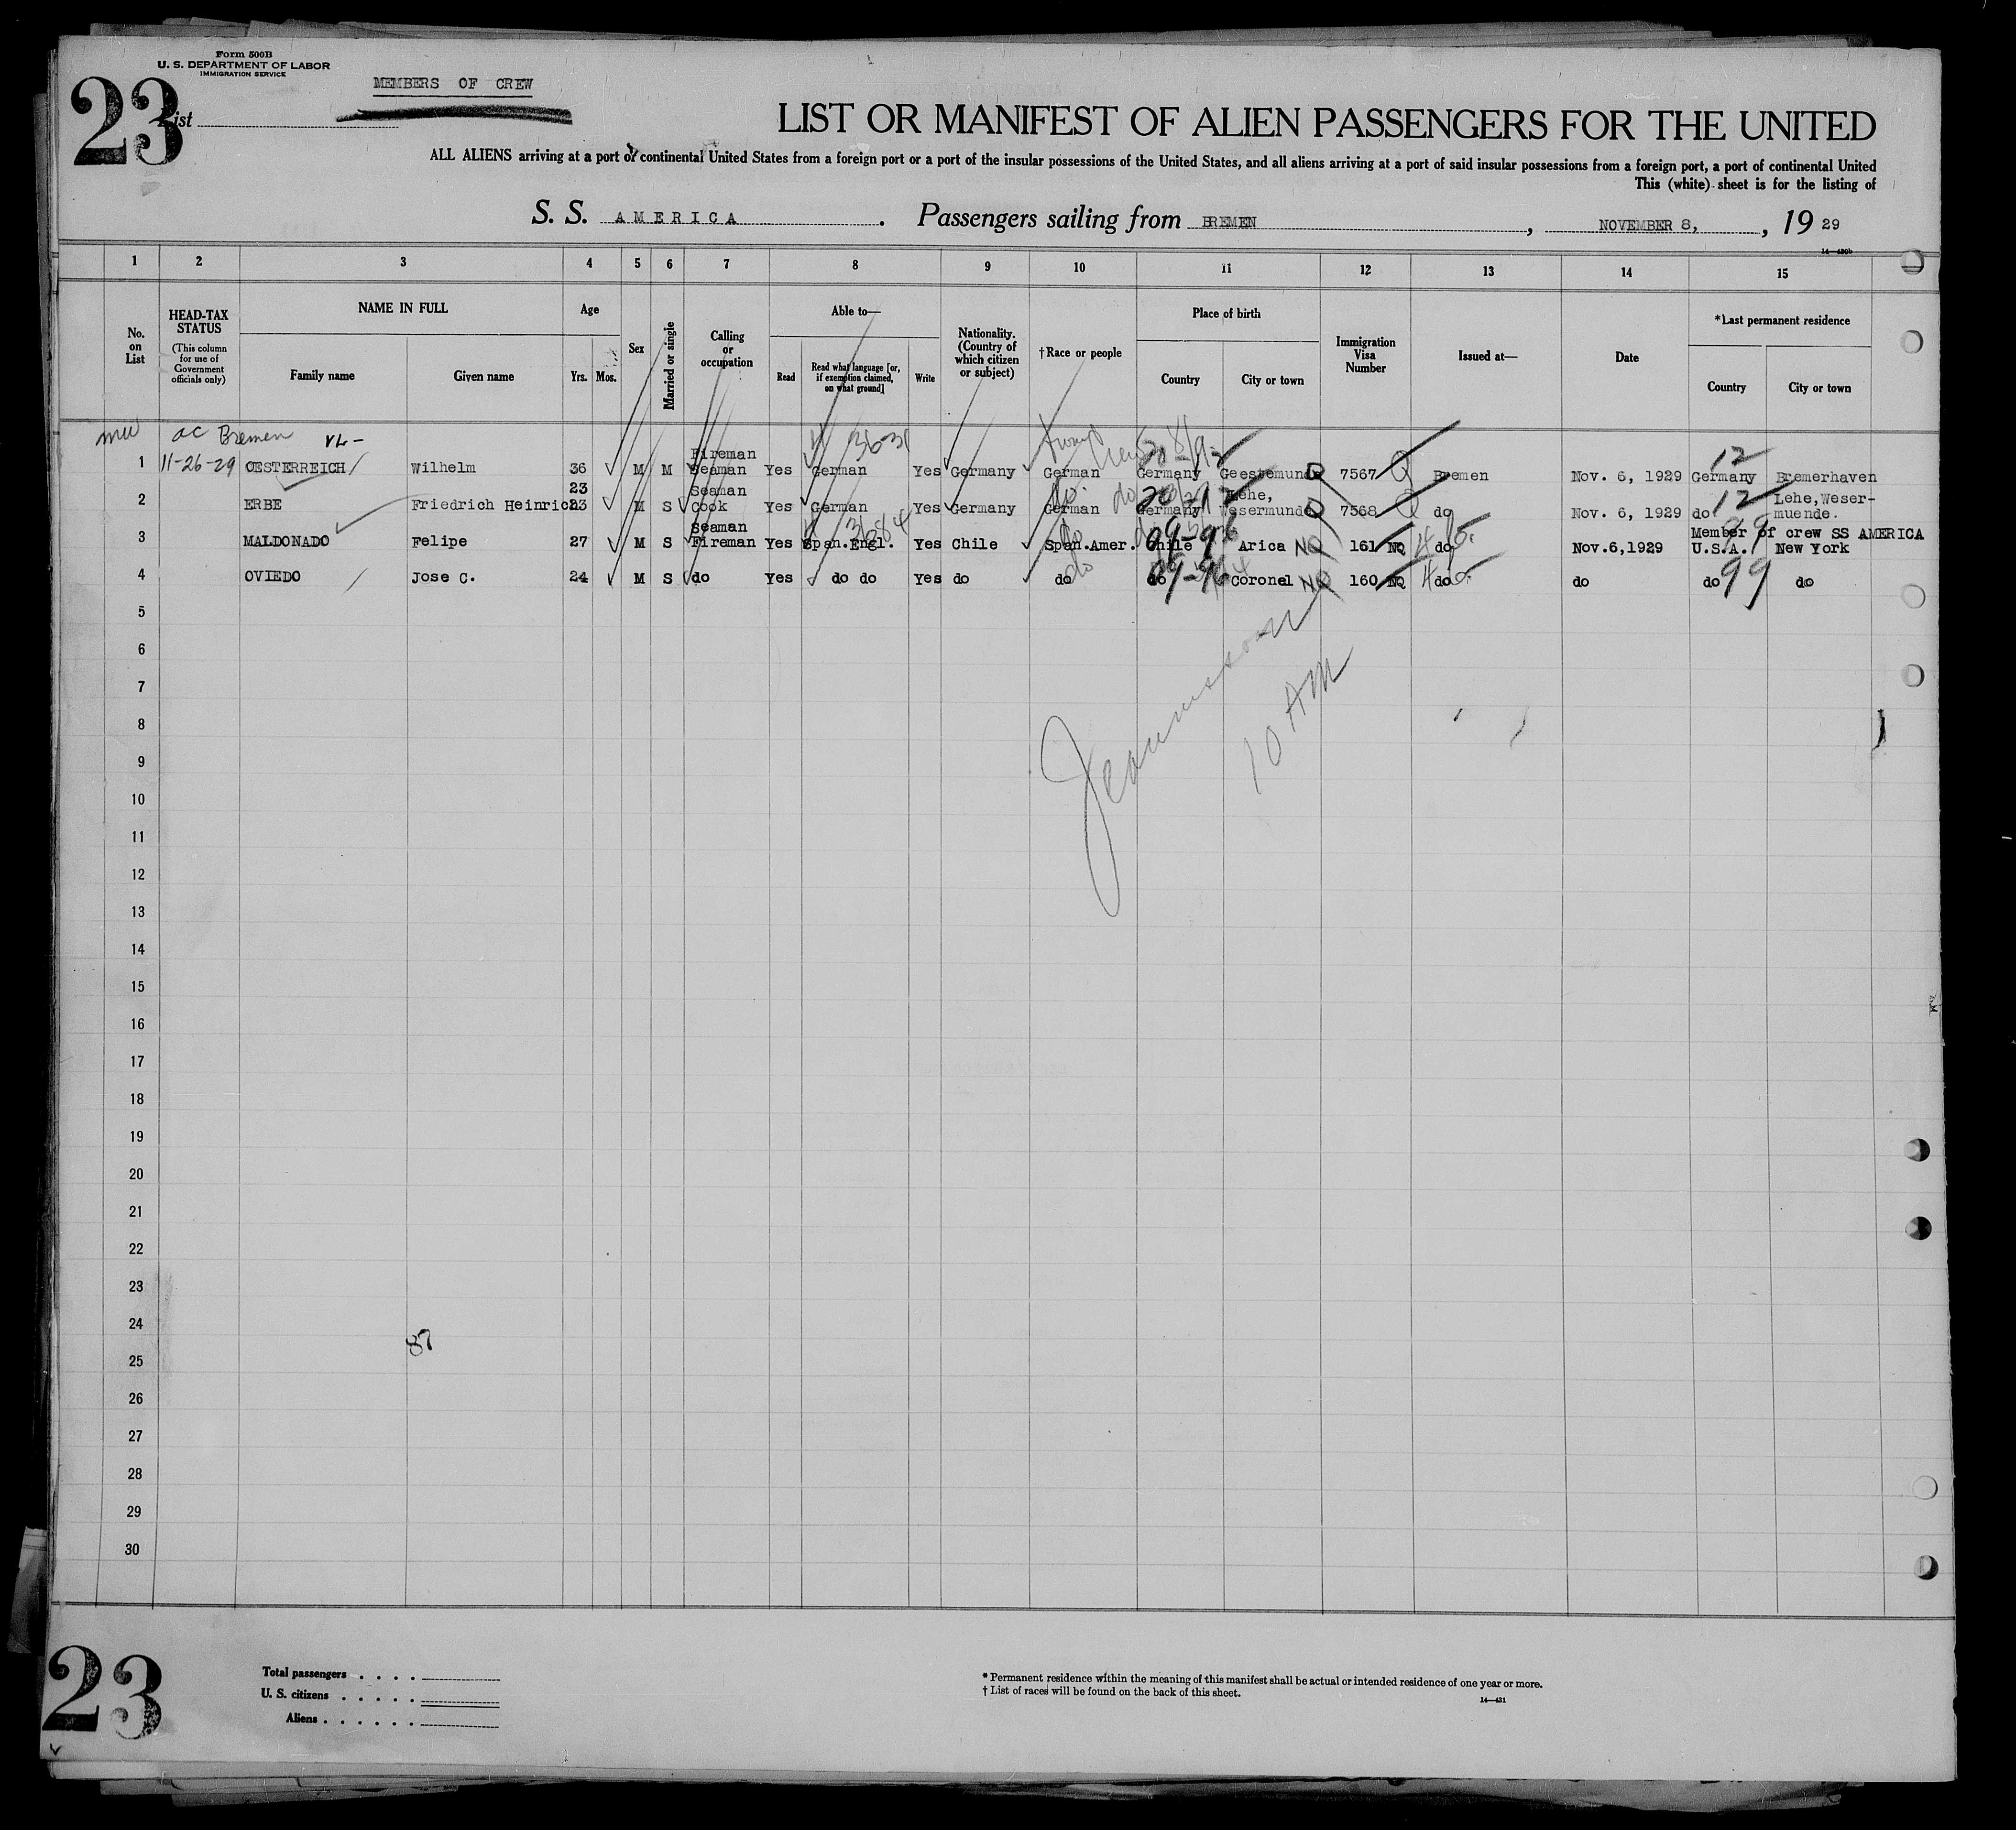 Form 500B
U. S. DEPARTMENT OF LABOR
IMMIGRATION SERVICE
MEMBERS OF CREW
23
List
LIST OR MANIFEST OF ALIEN PASSENGERS FOR THE UNITED
ALL ALIENS arriving at a port of continental United States from a foreign port or a port of the insular possessions of the United States, and all aliens arriving at a port of said insular possessions from a foreign port, a port of continental United
This (white) sheet is for the listing of
S. S. AMERICA . Passengers sailing from BREMEN , NOVEMBER 8, , 19 29
14—430b
1 2 3 4 5 6 7 8 9 10 11 12 13 14 15
No. on List
HEAD-TAX STATUS
(This column for use of Government officials only)
NAME IN FULL
Family name Given name
Age
Yrs. Mos.
Sex
Married or single
Calling or occupation
Able to—
Read Read what language [or, if exemption claimed, on what ground] Write
Nationality. (Country of which citizen or subject)
†Race or people
Place of birth
Country City or town
Immigration Visa Number
Issued at—
Date
*Last permanent residence
Country City or town
mw ac Bremen
11-26-29
1 OESTERREICH Wilhelm 36 M M Fireman Seaman Yes German Yes Germany German Germany Geestemunde Q 7567 Q Bremen Nov. 6, 1929 Germany 12 Bremerhaven
2 ERBE Friedrich Heinrich 23 23 M S Seaman Cook Yes German Yes Germany German do Germany Lehe, Wesermunde Q 7568 Q do Nov. 6, 1929 do 12 Lehe, Weser-muende.
3 MALDONADO Felipe 27 M S Seaman Fireman Yes Span.Engl. Yes Chile Span.Amer. do Chile 09-96 Arica NQ 161 NQ do Nov.6,1929 Member of crew SS AMERICA U.S.A. 99 New York
4 OVIEDO Jose C. 24 M S do Yes do do Yes do do do do 09-96 Coronel NQ 160 NQ do do do 99 do
5
6
7
8
9
10 AM
10
11
12
13
14
15
16
17
18
19
20
21
22
23
24
87
25
26
27
28
29
30
23
Total passengers . . . .
U. S. citizens . . . . .
Aliens . . . . . .
* Permanent residence within the meaning of this manifest shall be actual or intended residence of one year or more.
† List of races will be found on the back of this sheet.
14—431